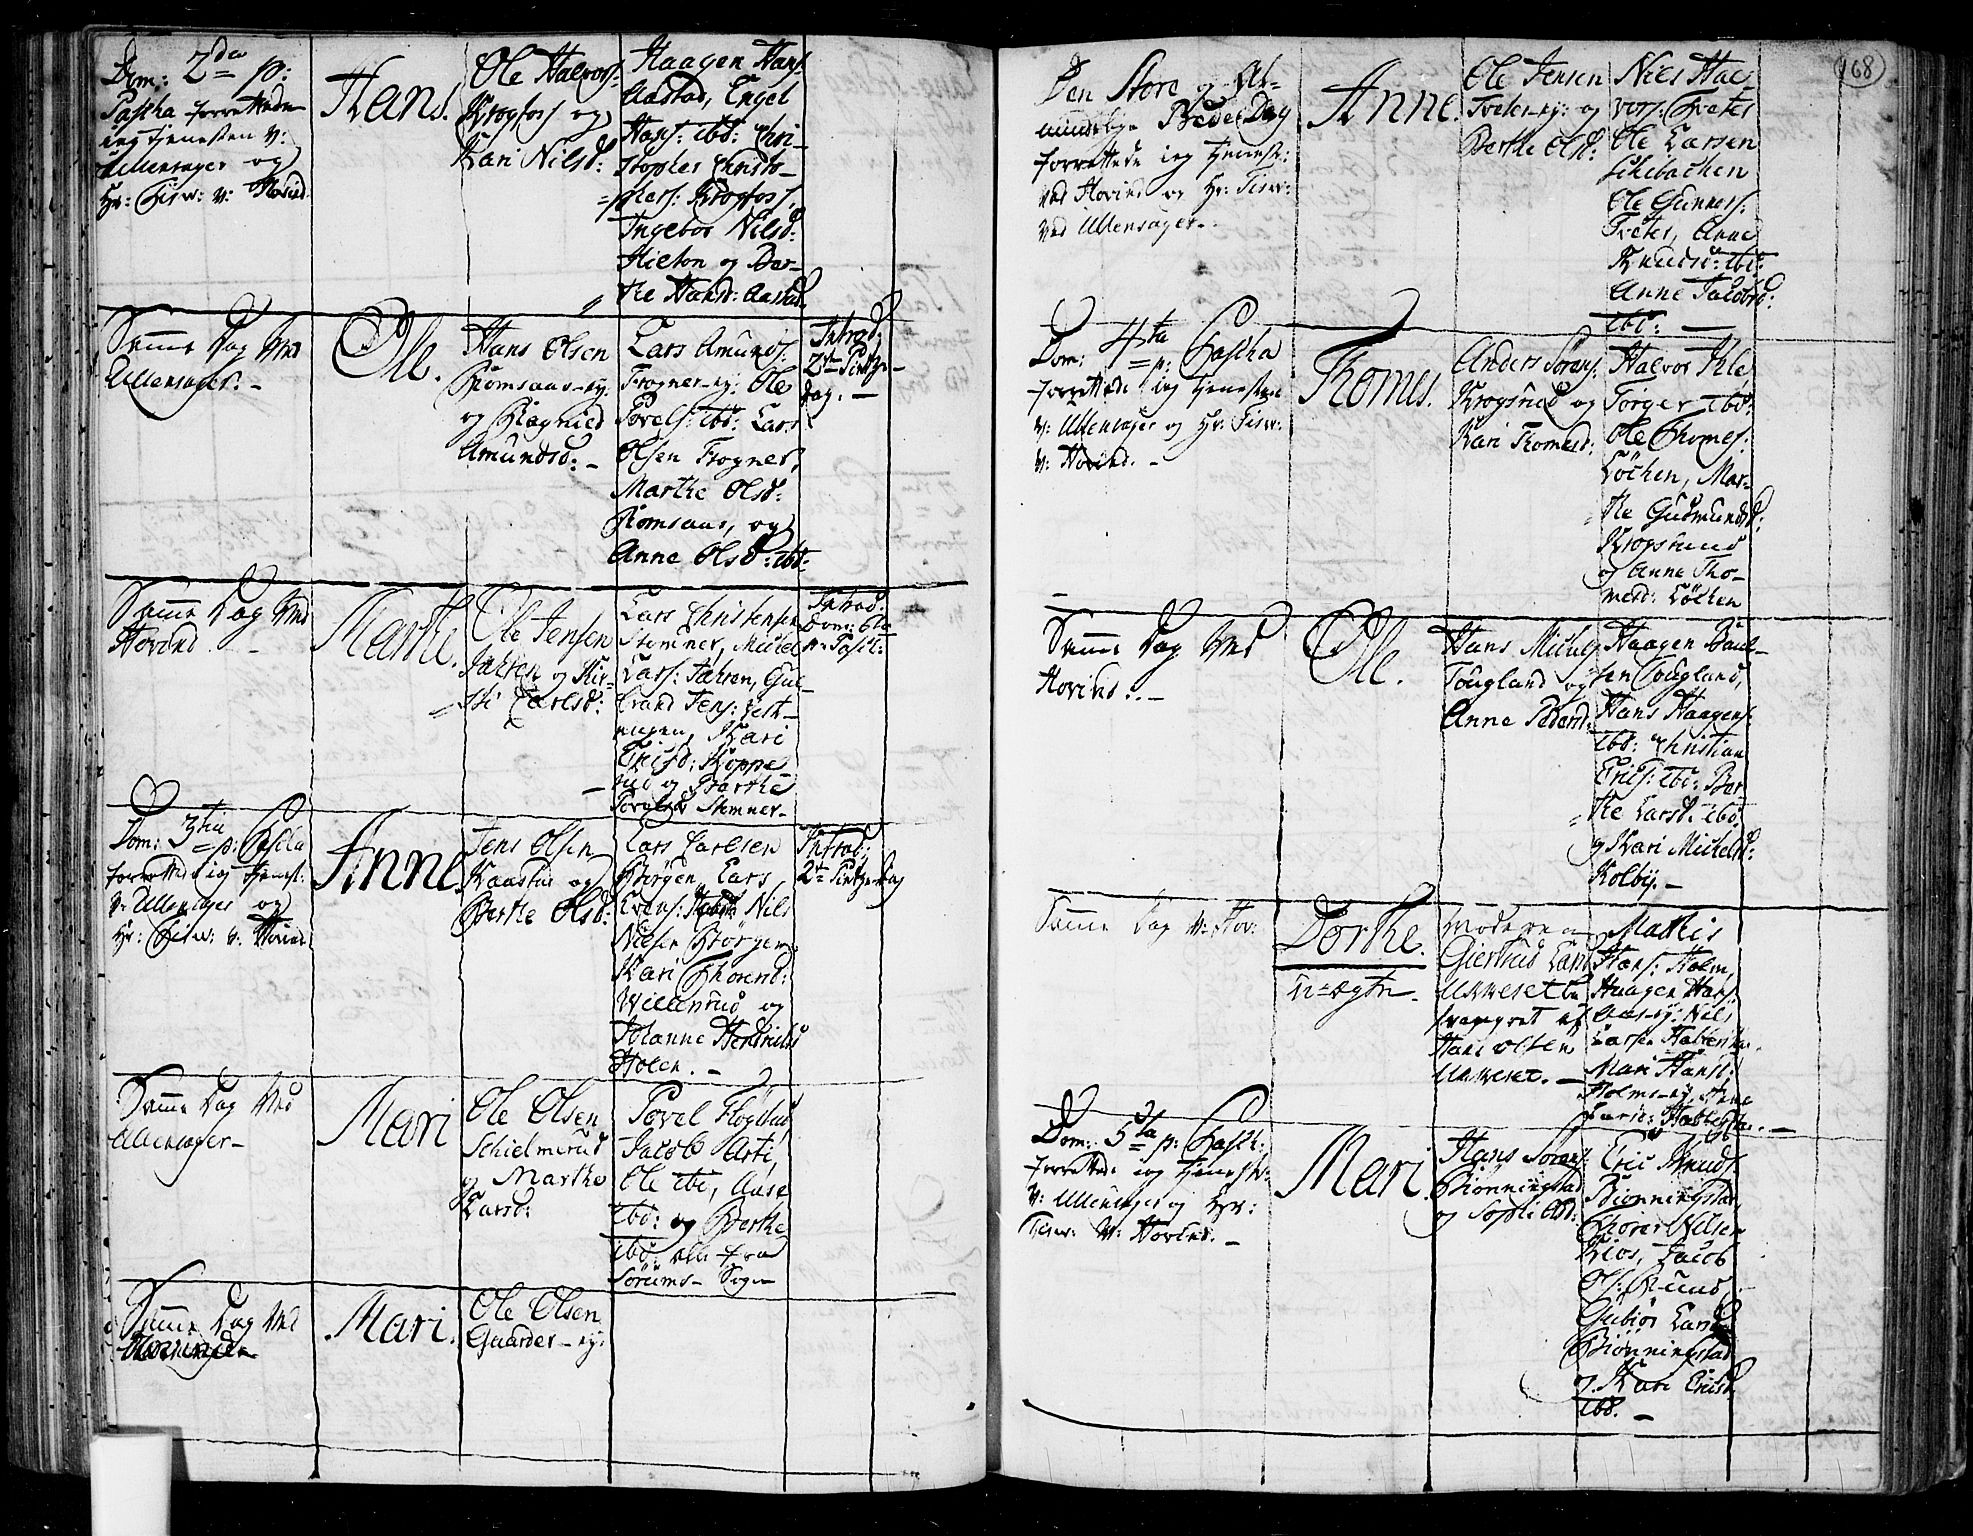 Dom: 2da p:
Pascha forrettede
ieg tjenesten v:
Ullensager og
Hr: Fisw: v: Hovind.
Hans.
Ole Halvors:
Krogfoss og
Kari Nilsd:
Haagen Hans:
Aastad, Engel
Hans: ibd: Chri-
stopher Christo-
phers: Krogfoss,
Ingebor Nilsd:
Hielton og Dor-
the Hansd: Aastad.
Samme Dag Ved
Ullensager. -
Ole.
Hans Olsen
Romsaas-ey:
og Ragnild
Amundsd: -
Lars Amunds:
Frogner-ey: Ole
Povels: ibd: Lars
Olsen Frogner,
Marthe Olsd:
Romsaas, og
Anne Olsd: ibd:
Introd:
2den Pintze-
dag. -
Samme Dag Ved
Hovind. -
Marthe.
Ole Jensen
Jahren og Kir-
sti Carlsd:
Lars Christensen
Stemner, Mickel
Lars: Jahren, Gul-
brand Jens:
Kari
Koppe
rud og Marthe
Stemner-
Introd:
Dom: 6ta
p: Pasch:
Dom: 3tia
p: Pascha
forrettede ieg tjenest:
v: Ullensager og
Hr: Fisw: v: Hovind
Anne
Jens Olsen
Kaastad og
Berthe Olsd:
Lars Carlsen
Børgen, Lars
Evens: Nils
Nielsen Børgen,
Kari Thorend:
Willenrud og
Johanne Hendrichsd
Holen. -
Introd:
2den Pintze-dag
Samme Dag Ved
Ullensager-
Mari
Ole Olsen
Schielmerud
og Marthe
Larsd:
Povel Flogstad
Jacob
Ole ibd, Aase
ibd: og Berthe
ibd: alle fra
Sørums- Sogn
Samme Dag Ved
Hovind.
Mari.
Ole Olsen
Gaarder-ey:
168
Den Store og Al-
mindelige Bede-Dag
forrettede ieg tjenest:
ved Hovind og Hr: Fisw:
ved Ullensager.
Anne.
Ole Jensen
Tveter-ey: og
Berthe Olsd:
Nils Hal-
vors: Tveter
Ole Larsen
Schibachen
Ole Gunners:
Tveter, Anne
Knudsd: ibd:
Anne Jacobsd:
ibd: -
Dom: 4ta
p: Pascha
forrettede ieg tjenesten
v: Ullensager og Hr: Fisw:
v: Hovind. -
Thomes.
Anders Sørens:
Krogsrud og
Kari Thomesd:
Halvor Ihle
Torger ibd:
Ole Thomes:
Løchen, Mar-
the Gudmundsd:
Krogsrud
og Anne Tho-
mesd: Løchen
Samme Dag Ved
Hovind. -
Ole.
Hans Mickels:
Tougland og
Anne Pedersd:
Haagen Poul-
sen Tougland,
Hans Haagens:
ibd: Christian
Erics: ibd: Ber-
the Larsd: ibd:
og Kari Mickelsd:
Kolby. -
Samme Dag v: Hov:
Dorthe.
u-ægte.
Moderen
Giertrud Larsd
Ukkeset be-
svangret af
Hans Olsen
Ukkeset. -
Mathis
Hans: Holm,
Haagen Hans:
Aas-ey: Nils
Larsen
Mari Hansd:
Holms-ey,
Dom: 5ta p: Pasch:
forrettede ieg tjenest:
v: Ullensager og Hr:
Fisw: v: Hovind. -
Mari.
Hans Sørens:
Biønningstad
og Sophi Olsd:
Eric Knuds:
Biønningstad,
Thorer Nilsen
Kios, Jacob
Ols: Ruud,
Gubiør Larsd:
Biønningstad
og Kari Ericsd
ibd. -